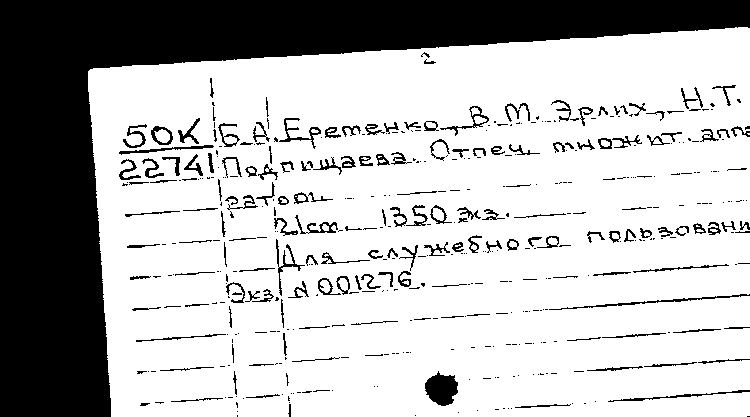 2
50К Б.А. Еременко, В.М. Эрлих, Н.Т.
22741 Подпищаева. Отпеч. множит. аппа
ратом.
21cm. 1350 экз.
Для служебного пользовани
Экз. № 001276.